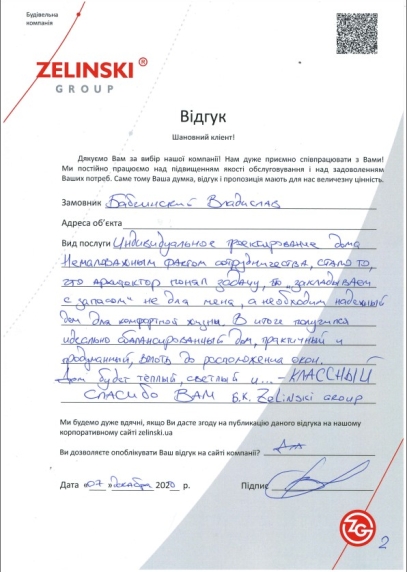 Будівельна
компанія
ZELINSKI®
GROUP
Відгук
Шановний клієнт!
Дякуємо Вам за вибір нашої компанії! Нам дуже приємно співпрацювати з Вами!
Ми постійно працюємо над підвищенням якості обслуговування і над задоволенням
Ваших потреб. Саме тому Ваша думка, відгук і пропозиція мають для нас величезну цінність.
Замовник Владислав
Адреса об'єкта
Вид послуги Индивидуальное проектирование дома
Немаловажным фактом сотрудничества, стало то,
что архитектор понял задачу, что "закладываем
с запасом" не для меня, а необходим надежный
дом для комфортной жизни. В итоге получился
идеально сбалансированный дом, практичный и
продуманный, вплоть до расположения окон.
Дом будет теплый, светлый и... КЛАССНЫЙ
СПАСИБО ВАМ Б.К. Zelinski group
Ми будемо дуже вдячні, якщо Ви дасте згоду на публікацію даного відгука на нашому
корпоративному сайті zelinski.ua
Ви дозволяєте опублікувати Ваш відгук на сайті компанії? Да
Дата «07 »декабря 2020 р. Підпис
ZG
2